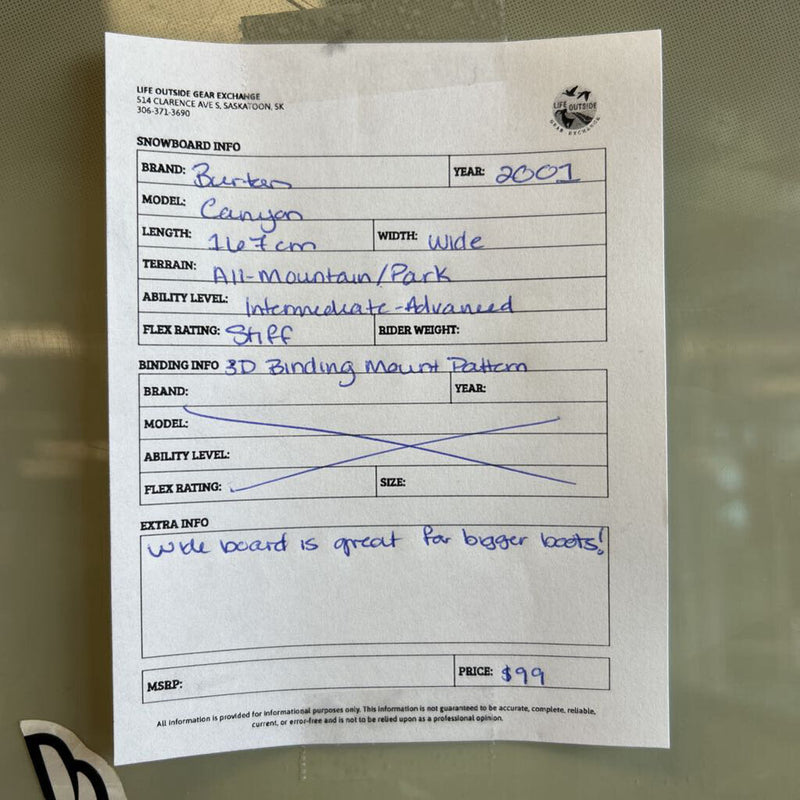 LIFE OUTSIDE GEAR EXCHANGE
514 CLARENCE AVE S, SASKATOON, SK
306-371-3690
LIFE OUTSIDE
GEAR EXCHANGE
SNOWBOARD INFO
BRAND: Burton YEAR: 2001
MODEL: Canyon
LENGTH: 167cm WIDTH: Wide
TERRAIN: All-Mountain/Park
ABILITY LEVEL: Intermediate-Advanced
FLEX RATING: Stiff RIDER WEIGHT:
BINDING INFO 3D Binding Mount Pattern
BRAND: YEAR:
MODEL:
ABILITY LEVEL:
FLEX RATING: SIZE:
EXTRA INFO
Wide board is great for bigger boots!
MSRP: PRICE: $99
All information is provided for informational purposes only. This information is not guaranteed to be accurate, complete, reliable,
current, or error-free and is not to be relied upon as a professional opinion.